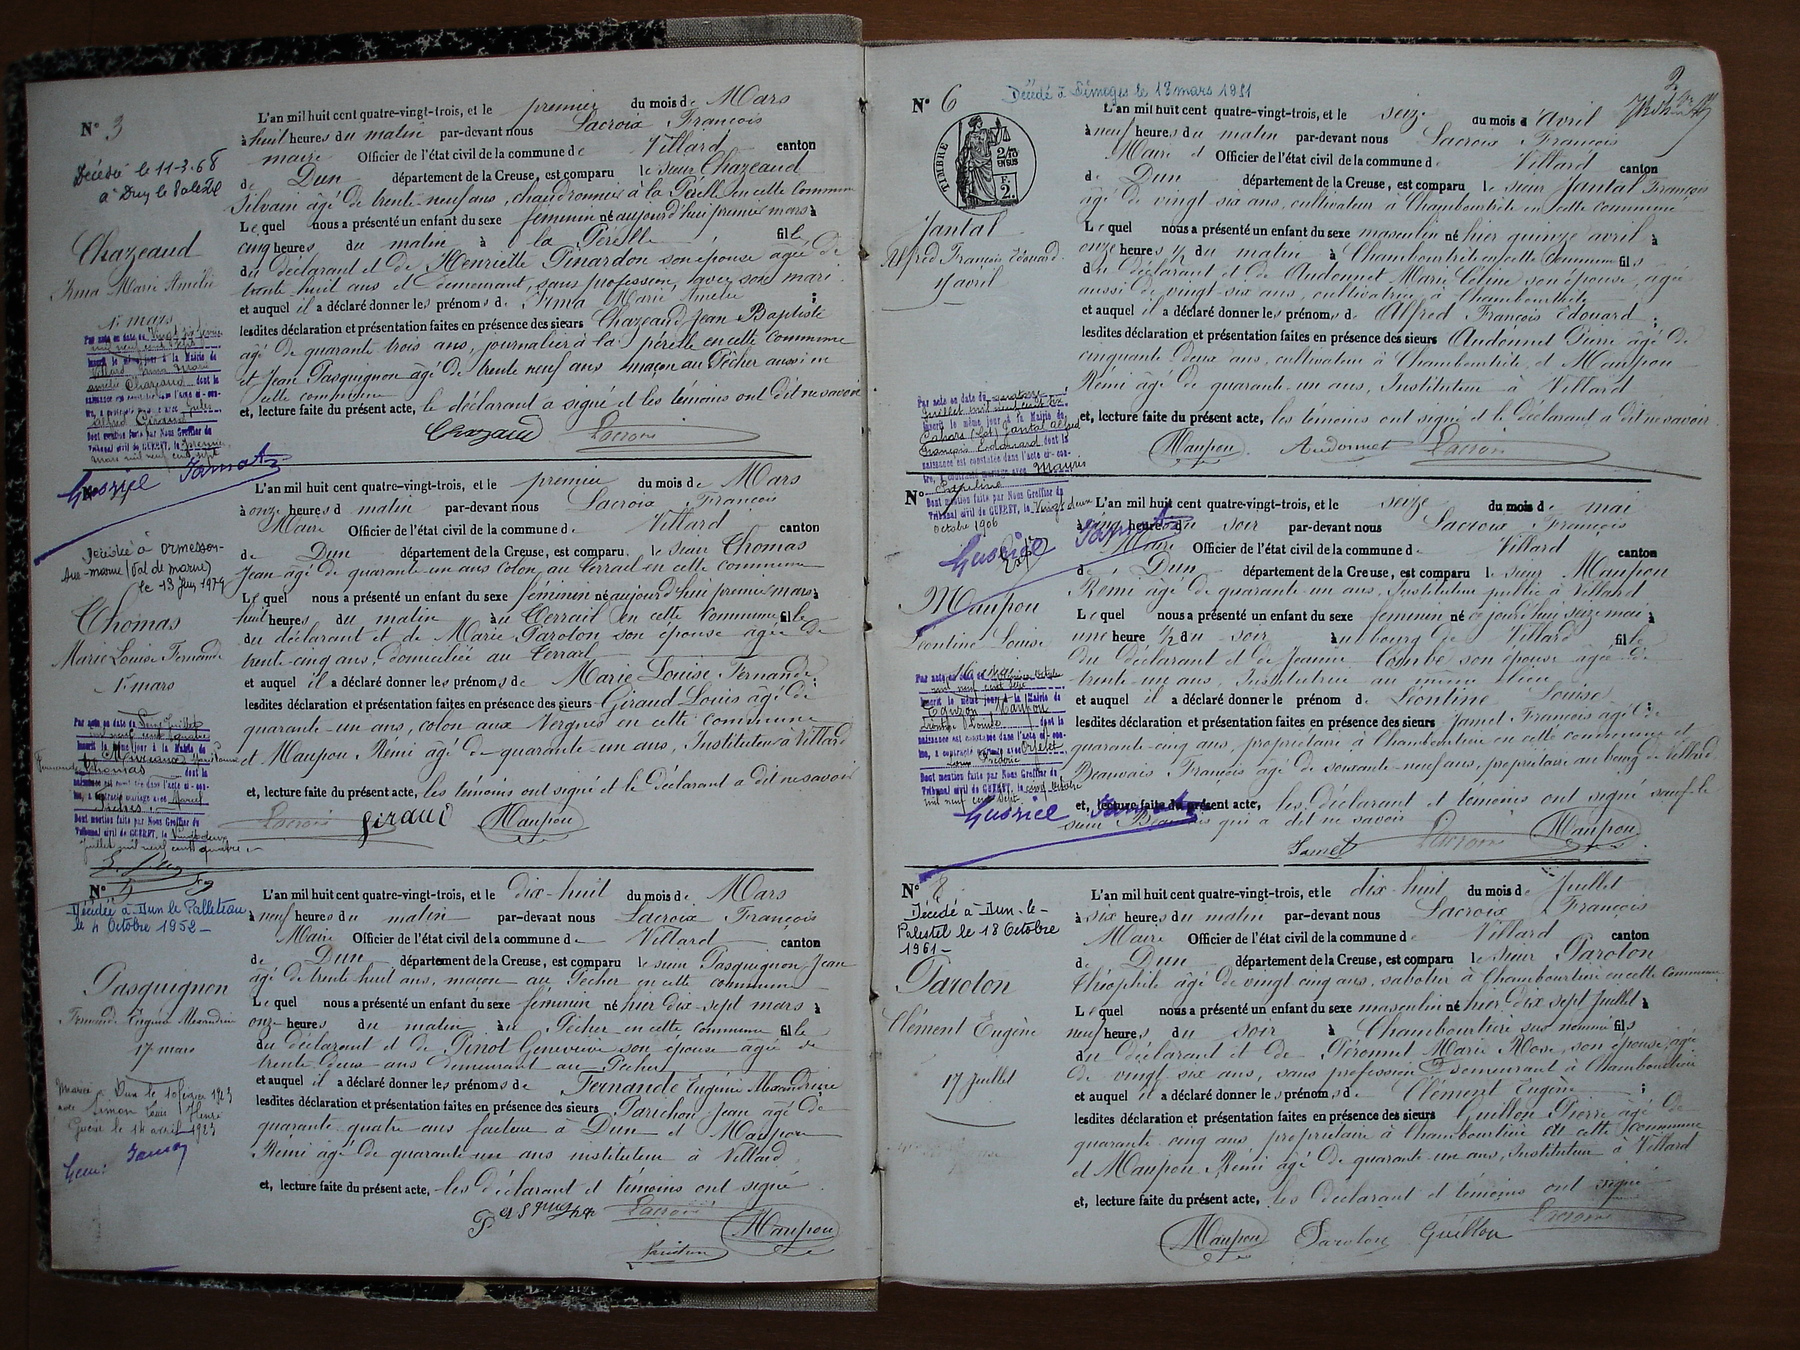 N° 3
Décédée le 11-3-68
à Dun le Palestel
Chazeaud
Irma Marie Amélie
1er mars
Par acte en date du Vingt six février
mil neuf cent sept
inscrit le même jour à la Mairie de
Villard Irma Marie
Amélie Chazeaud dont la
naissance est constatée dans l'acte ci-con-
tre, a contracté mariage avec Jules
Alfred Giraud
Dont mention faite par Nous Greffier du
Tribunal civil de GUÉRET, le premier
mars mil neuf cent sept
L'an mil huit cent quatre-vingt-trois, et le premier du mois de Mars
à huit heures du matin par-devant nous Lacroix François
maire Officier de l'état civil de la commune de Villard canton
de Dun département de la Creuse, est comparu le sieur Chazeaud
Silvain âgé de trente-neuf ans, chaudronnier à la Péville en cette commune
Lequel nous a présenté un enfant du sexe féminin né aujourd'hui premier mars à
cinq heures du matin à la Péville fille
du déclarant et de Henriette Pinardon son épouse âgée de
trente huit ans et demeurant, sans profession, avec son mari
et auquel il a déclaré donner les prénoms de Irma Marie Amélie ;
lesdites déclaration et présentation faites en présence des sieurs Chazeaud Jean Baptiste
âgé de quarante trois ans, journalier à la Péville en cette commune
et Jean Pasquignon âgé de trente neuf ans maçon au Pêcher aussi en
cette commune
et, lecture faite du présent acte, le déclarant a signé et les témoins ont dit ne savoir
Chazaud Lacroix
N° 4
Décédée à Ormesson-
sur-marne (Val de marne)
le 13 Juin 1979
Thomas
Marie Louise Fernande
1er mars
Par acte en date du
mil neuf cent quatre
inscrit le même jour à la Mairie de
Marie Louise
Fernande Thomas dont la
naissance est constatée dans l'acte ci-con-
tre, a contracté mariage avec Marcel
Dont mention faite par Nous Greffier du
Tribunal civil de GUÉRET, le Vingt deux
juillet mil neuf cent quatre
L'an mil huit cent quatre-vingt-trois, et le premier du mois de Mars
à onze heures du matin par-devant nous Lacroix François
Maire Officier de l'état civil de la commune de Villard canton
de Dun département de la Creuse, est comparu le sieur Thomas
Jean âgé de quarante-un ans colon au Terrail en cette commune
Lequel nous a présenté un enfant du sexe féminin né aujourd'hui premier mars à
huit heures du matin au Terrail en cette commune fille
du déclarant et de Marie Paroton son épouse âgée de
trente-cinq ans, domiciliée au Terrail
et auquel il a déclaré donner les prénoms de Marie Louise Fernande ;
lesdites déclaration et présentation faites en présence des sieurs Giraud Louis âgé de
quarante-un ans, colon aux Vergnes en cette commune
et Maupou Rémi âgé de quarante-un ans, Instituteur à Villard
et, lecture faite du présent acte, les témoins ont signé et le déclarant a dit ne savoir
Lacroix Giraud Maupou
N° 5
Décédée à Dun le Palleteau
le 4 Octobre 1952
Pasquignon
Fernande Eugénie Alexandrine
17 mars
Mariée à Dun le 10 février 1923
avec Simon Louis Henri
Guéret le 14 avril 1923
L'an mil huit cent quatre-vingt-trois, et le dix-huit du mois de Mars
à neuf heures du matin par-devant nous Lacroix François
Maire Officier de l'état civil de la commune de Villard canton
de Dun département de la Creuse, est comparu le sieur Pasquignon Jean
âgé de trente huit ans, maçon au Pêcher en cette commune
Lequel nous a présenté un enfant du sexe féminin né hier dix-sept mars à
onze heures du matin au Pêcher en cette commune fille
du déclarant et de Pinot Geneviève son épouse âgée de
trente-deux ans demeurant au Pêcher
et auquel il a déclaré donner les prénoms de Fernande Eugénie Alexandrine
lesdites déclaration et présentation faites en présence des sieurs Parichon Jean âgé de
quarante quatre ans facteur à Dun et Maupou
Rémi âgé de quarante-un ans instituteur à Villard
et, lecture faite du présent acte, les déclarant et témoins ont signé
Pasquignon Lacroix Maupou
Parichon
N° 6
Décédé à Limoges le 13 mars 1951
TIMBRE
2/10
EN SUS
F.
2.
Jantal
Alfred François Édouard
15 avril
Par acte en date du quatorze
juillet mil neuf cent six
inscrit le même jour à la Mairie de
Cahors (Lot) Jantal Alfred
François Édouard dont la
naissance est constatée dans l'acte ci-con-
tre, a contracté mariage avec
Dont mention faite par Nous Greffier du
Tribunal civil de GUÉRET, le Vingt deux
octobre 1906
L'an mil huit cent quatre-vingt-trois, et le seize du mois d'Avril
à neuf heures du matin par-devant nous Lacroix François
Maire Officier de l'état civil de la commune de Villard canton
de Dun département de la Creuse, est comparu le sieur Jantal François
âgé de vingt-six ans, cultivateur à Chambourtiére en cette commune
Lequel nous a présenté un enfant du sexe masculin né hier quinze avril à
onze heures ½ du matin à Chambourtiére en cette commune fils
du déclarant et de Audonnet Marie Céline son épouse, âgée
aussi de vingt-six ans, cultivatrice à Chambourtiére
et auquel il a déclaré donner les prénoms de Alfred François Édouard ;
lesdites déclaration et présentation faites en présence des sieurs Audonnet Pierre âgé de
cinquante deux ans, cultivateur à Chambourtiére, et Maupou
Rémi âgé de quarante-un ans, Instituteur à Villard
et, lecture faite du présent acte, les témoins ont signé et le déclarant a dit ne savoir
Maupou Audonnet Lacroix
N° 7
Maupou
Léontine Louise
Par acte en date du
mil neuf cent
inscrit le même jour à la Mairie de
Maupou
Léontine Louise dont la
naissance est constatée dans l'acte ci-con-
tre, a contracté mariage avec
Dont mention faite par Nous Greffier du
Tribunal civil de GUÉRET, le cinq octobre
mil neuf cent sept
L'an mil huit cent quatre-vingt-trois, et le seize du mois de mai
à cinq heures du soir par-devant nous Lacroix François
Maire Officier de l'état civil de la commune de Villard canton
de Dun département de la Creuse, est comparu le sieur Maupou
Rémi âgé de quarante-un ans, Instituteur public à Villard
Lequel nous a présenté un enfant du sexe féminin né ce jourd'hui seize mai à
une heure ½ du soir au bourg de Villard fille
du déclarant et de Jeanne Combe son épouse âgée de
trente-un ans, Institutrice au même lieu
et auquel il a déclaré donner les prénom de Léontine Louise ;
lesdites déclaration et présentation faites en présence des sieurs Jamet François âgé de
quarante-cinq ans, propriétaire à Chambourtiére en cette commune et
Beauvais François âgé de soixante-neuf ans, propriétaire au bourg de Villard
et, lecture faite du présent acte, les déclarant et témoins ont signé sauf le
sieur Beauvais qui a dit ne savoir
Jamet Lacroix Maupou
N° 8
Décédé à Dun-le-
Palestel le 18 Octobre
1961
Paroton
Clément Eugène
17 Juillet
L'an mil huit cent quatre-vingt-trois, et le dix-huit du mois de Juillet
à six heures du matin par-devant nous Lacroix François
Maire Officier de l'état civil de la commune de Villard canton
de Dun département de la Creuse, est comparu le sieur Paroton
Théophile âgé de vingt cinq ans, sabotier à Chambourtiére en cette commune
Lequel nous a présenté un enfant du sexe masculin né hier dix sept Juillet à
neuf heures du soir à Chambourtiére sus nommé fils
du déclarant et de Péronnet Marie Rose, son épouse, âgée
de vingt six ans, sans profession demeurant à Chambourtiére
et auquel il a déclaré donner les prénoms de Clément Eugène ;
lesdites déclaration et présentation faites en présence des sieurs Guillon Pierre âgé de
quarante cinq ans propriétaire à Chambourtiére en cette commune
et Maupou Rémi âgé de quarante-un ans, Instituteur à Villard
et, lecture faite du présent acte, les déclarant et témoins ont signé
Maupou Paroton Guillon Lacroix